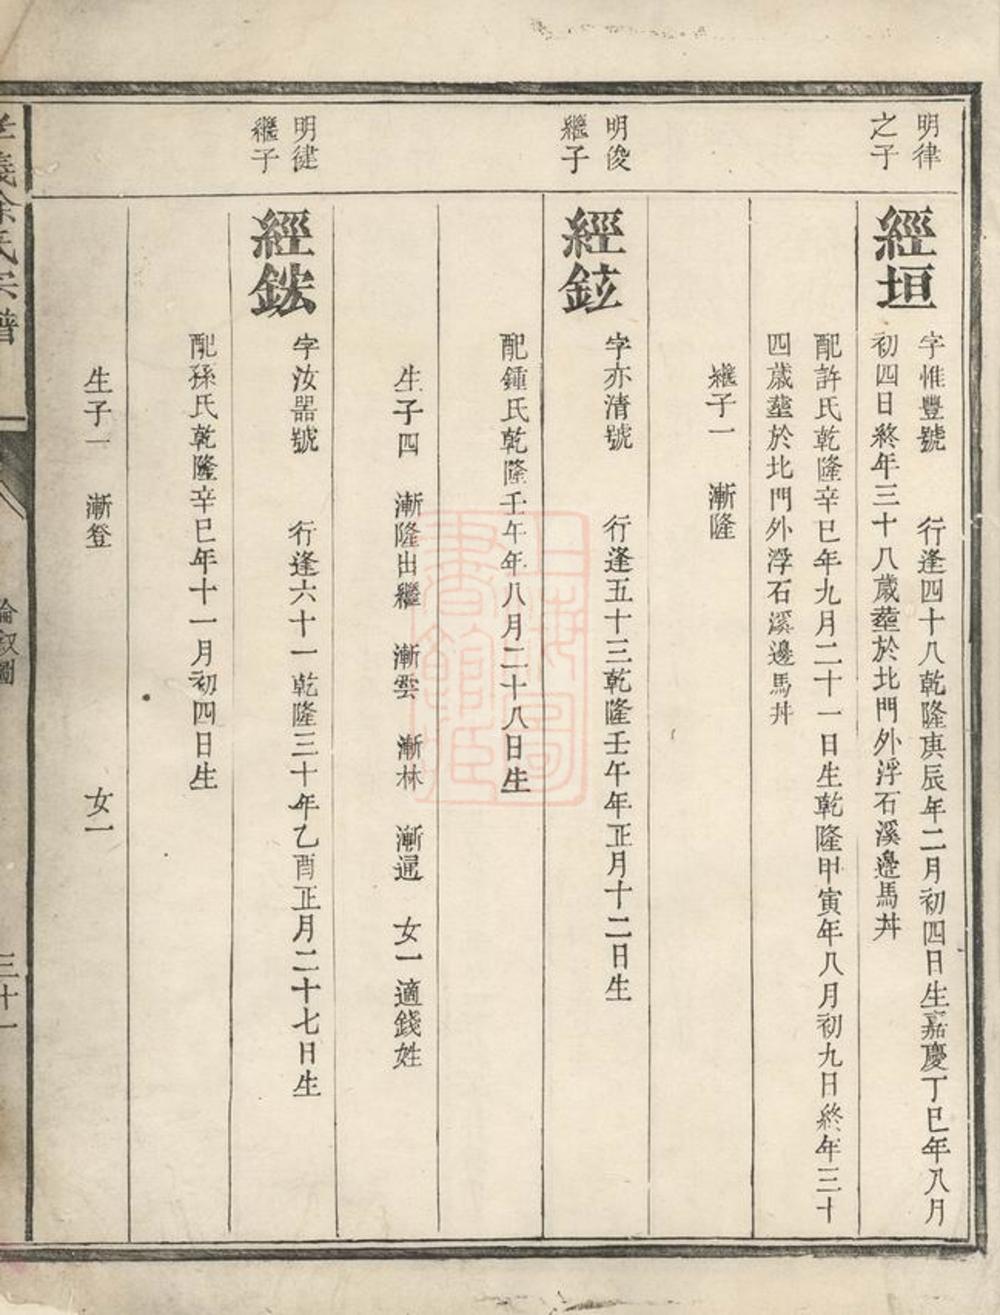 明律
之子
經垣
字惟豐號 行逢四十八乾隆庚辰年二月初四日生嘉慶丁巳年八月
初四日終年三十八歲塟於北門外浮石溪邊馬丼
配許氏乾隆辛巳年九月二十一日生乾隆甲寅年八月初九日終年三十
四歲塟於北門外浮石溪邊馬丼
繼子一 漸隆
明俊
繼子
經鉉
字亦清號 行逢五十三乾隆壬午年正月十二日生
配鍾氏乾隆壬午年八月二十八日生
生子四 漸隆出繼 漸雲 漸林 漸暹 女一適錢姓
明健
繼子
經鋐
字汝器號 行逢六十一乾隆三十年乙酉正月二十七日生
配孫氏乾隆辛巳年十一月初四日生
生子一 漸登 女一
孝義余氏宗譜
三十一
上海圖書館藏